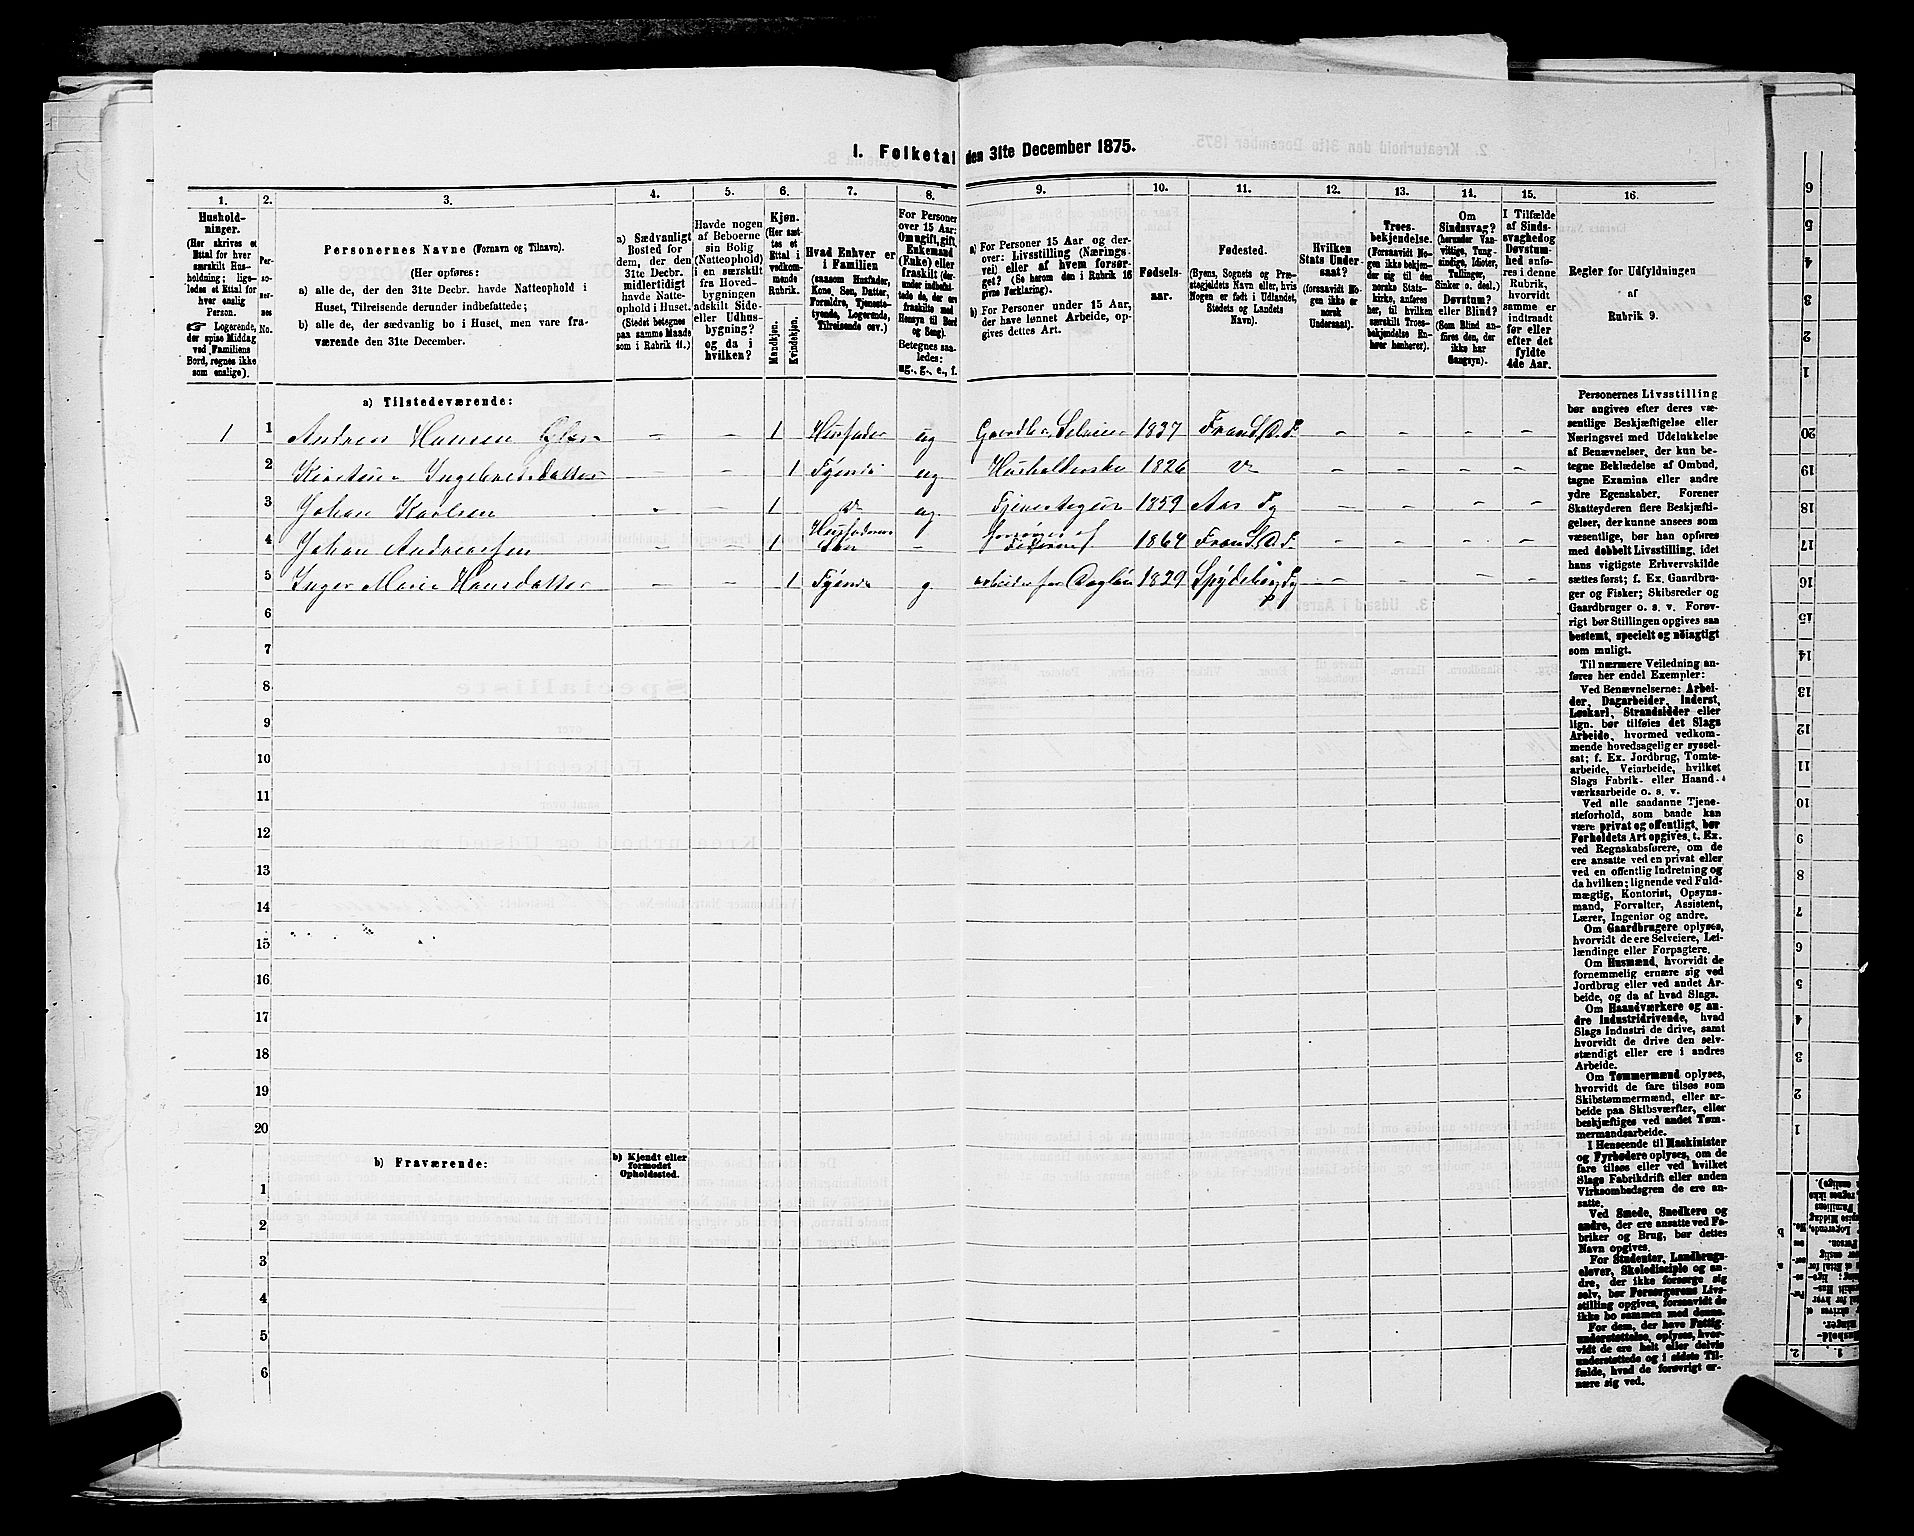 1. Folketal den 31te December 1875.
1. 2. 3. 4. 5. 6. 7. 8. 9. 10. 11. 12. 13. 14. 15. 16.
Hushold-
ninger.
(Her skrives et
Ettal for hver
særskilt Hus-
holdning; lige-
ledes et Ettal for
hver enslig
Person.
☞ Logerende,
der spise Middag
ved Familiens
Bord, regnes ikke
som enslige).
Per-
so-
ner-
nes
No.
Personernes Navne (Fornavn og Tilnavn).
(Her opføres:
a) alle de, der den 31te Decbr. havde Natteophold i
Huset, Tilreisende derunder indbefattede;
b) alle de, der sædvanlig bo i Huset, men vare fra-
værende den 31te December.
a) Sædvanligt
Bosted for
dem, der den
31te Decbr.
midlertidigt
havde Natte-
ophold i Huset.
(Stedet betegnes
paa samme Maade
som i Rubrik 11.)
Havde nogen
af Beboerne
sin Bolig
(Natteophold)
i en særskilt
fra Hoved-
bygningen
adskilt Side-
eller Udhus-
bygning?
og da i
hvilken?
Kjøn.
(Her sæt-
tes et
Ettal i
vedkom-
mende
Rubrik.
Mandkjøn.
Kvindekjøn.
Hvad Enhver er
i Familien
(saasom Husfader,
Kone, Søn, Datter,
Forældre, Tjeneste-
tyende, Logerende,
Tilreisende osv.)
For Personer
over 15 Aar:
Om ugift, gift,
Enkemand
(Enke) eller
fraskilt (der-
under indbefat-
tede de, der ere
fraskilte med
Hensyn til Bord
og Seng).
Betegnes saa-
ledes:
ug., g., e., f.
a) For Personer 15 Aar og der-
over: Livsstilling (Nærings-
vei) eller af hvem forsør-
get? (Se herom den i Rubrik 16
givne Forklaring).
b) For Personer under 15 Aar,
der have lønnet Arbeide, op-
gives dettes Art.
Fødsels-
aar.
Fødested.
(Byens, Sognets og Præ-
stegjeldets Navn eller, hvis
Nogen er født i Udlandet,
Stedets og Landets
Navn).
Hvilken
Stats Under-
saat?
(forsaavidt No-
gen ikke er
norsk
Undersaat).
Troes-
bekjendelse.
(Forsaavidt No-
gen ikke bekjen-
der sig til den
norske Stats-
kirke, anføres
her, til hvilken
særskilt Troes-
bekjendelse En-
hver henhører).
Om
Sindssvag?
(herunder Van-
vittige, Tung-
sindige, Idioter,
Tullinger,
Sinker o. desl.)
Døvstum?
eller Blind?
(Som Blind an-
føres den, der
ikke har
Gangsyn).
I Tilfælde
af Sinds-
svaghed og
Døvstum-
hed anføres
i denne
Rubrik,
hvorvidt
samme er
indtraadt
før eller
efter det
fyldte
4de Aar.
Regler for Udfyldningen
af
Rubrik 9.
a) Tilstedeværende:
1 1 Andreas Hansen – – 1 Husfader ug Selveier 1837
2 Ingebretsdatter – – 1 Tyende ug Husholderske 1826 – – – –
3 Johan Karlsen – 1 ug Tjenestegut 1859 Aas
4 Johan Andreassen – – 1 Husfaderens Søn – 1864
5 Inger Marie Hansdatter – – 1 Tyende g 1829 Spydeberg
6
7
8
9
10
11
12
13
14
15
16
17
18
19
20
b) Fraværende:
b) Kjendt eller
formodet
Opholdssted.
1
2
3
4
5
6
Personernes Livsstilling
bør angives efter deres væ-
sentlige Beskjæftigelse eller
Næringsvei med Udelukkelse
af Benævnelser, der kun be-
tegne Beklædelse af Ombud,
tagne Examina eller andre
ydre Egenskaber. Forener
Skatteyderen flere Beskjæfti-
gelser, der kunne ansees som
væsentlige, bør han opføres
med dobbelt Livsstilling, idet
hans vigtigste Erhvervskilde
sættes først; f. Ex. Gaardbru-
ger og Fisker; Skibsreder og
Gaardbruger o. s. v. Forøv-
rigt bør Stillingen opgives saa
bestemt, specielt og nøiagtigt
som muligt.
Til nærmere Veiledning an-
føres her endel Exempler:
Ved Benævnelserne: Arbei-
der, Dagarbeider, Inderst,
Løskarl, Strandsidder eller
lign. bør tilføies det Slags
Arbeide, hvormed vedkom-
mende hovedsagelig er syssel-
sat; f. Ex. Jordbrug, Tomte-
arbeide, Veiarbeide, hvilket
Slags Fabrik- eller Haand-
værksarbeide o. s. v.
Ved alle saadanne Tjene-
steforhold, som baade kan
være privat og offentligt, bør
Forholdets Art opgives, t. Ex.
ved Regnskabsførere, om de
ere ansatte ved en privat eller
ved en offentlig Indretning og
da hvilken; lignende ved Fuld-
mægtig, Kontorist, Opsyns-
mand, Forvalter, Assistent,
Lærer, Ingeniør og andre.
Om Gaardbrugere oplyses,
hvorvidt de ere Selveiere, Lei-
lændinge eller Forpagtere.
Om Husmænd, hvorvidt de
fornemmelig ernære sig ved
Jordbrug eller ved andet Ar-
beide, og da af hvad Slags.
Om Haandværkere og an-
dre Industridrivende, hvad
Slags Industri de drive, samt
hvorvidt de drive den selv-
stændigt eller ere i andres
Arbeide.
Om Tømmermænd oplyses,
hvorvidt de fare tilsøs som
Skibstømmermænd, eller ar-
beide paa Skibsværfter, eller
beskjæftiges ved andet Tøm-
mermandsarbeide.
I Henseende til Maskinister
og Fyrbødere oplyses, om de
fare tilsøs eller ved hvilket
Slags Fabrikdrift eller anden
Virksomhedsgren de ere an-
satte.
Ved Smede, Snedkere og
andre, der ere ansatte ved Fa-
briker og Brug, bør dettes
Navn opgives.
For Studenter, Landbrugs-
elever, Skoledisciple og an-
dre, der ikke forsørge sig
selv, bør Forsørgerens Livs-
stilling opgives, forsaavidt de
ikke bo sammen med denne.
For dem, der have Fattig-
understøttelse, oplyses, hvor-
vidt de ere helt eller delvis
understøttede og i sidste Til-
fælde, hvad de forøvrigt er-
nære sig ved.